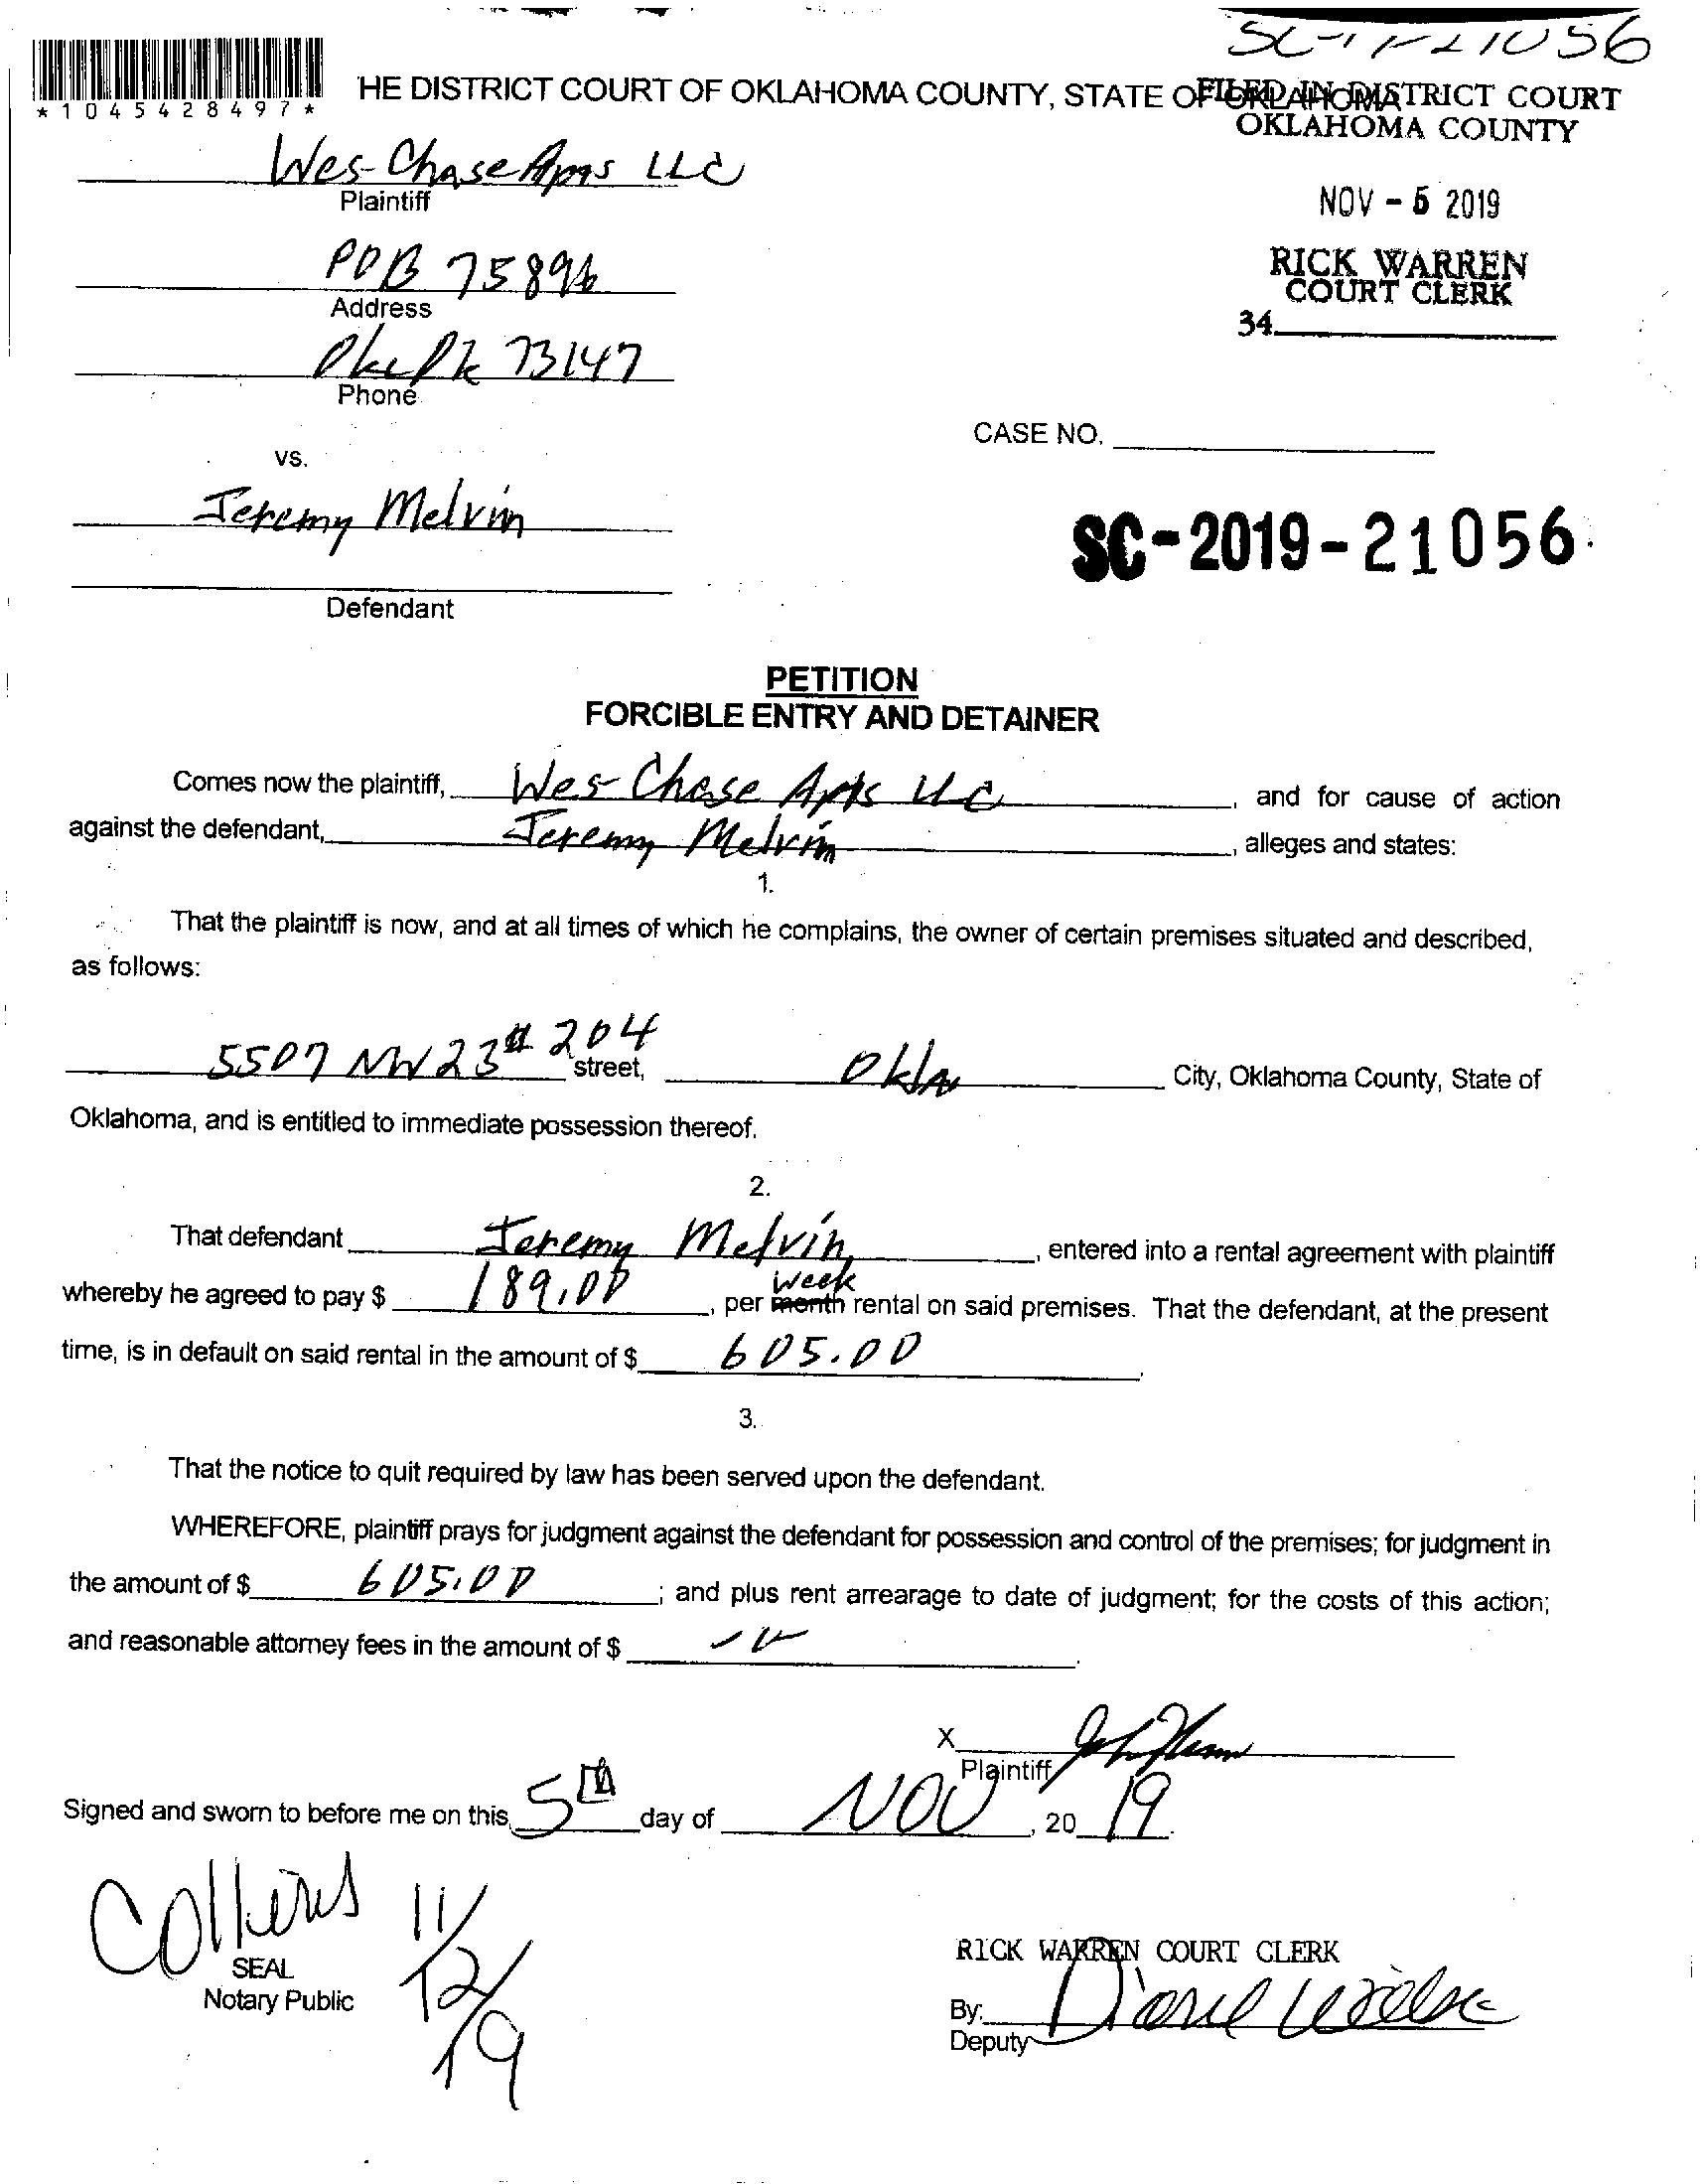 *1045428497*
HE DISTRICT COURT OF OKLAHOMA COUNTY, STATE OF OKLAHOMA
FILED IN DISTRICT COURT
OKLAHOMA COUNTY
Wes-Chase Apts LLC
Plaintiff
NOV - 5 2019
POB 75896
Address
RICK WARREN
COURT CLERK
34
Okc Ok 73147
Phone
CASE NO.
vs.
Jeremy Melvin
SC-2019-21056
Defendant
PETITION
FORCIBLE ENTRY AND DETAINER
Comes now the plaintiff, Wes-Chase Apts LLC, and for cause of action
against the defendant, Jeremy Melvin, alleges and states:
1.
That the plaintiff is now, and at all times of which he complains, the owner of certain premises situated and described,
as follows:
5507 NW 23 # 204 street, Okla City, Oklahoma County, State of
Oklahoma, and is entitled to immediate possession thereof.
2.
That defendant Jeremy Melvin, entered into a rental agreement with plaintiff
whereby he agreed to pay $ 189.00, per month week rental on said premises. That the defendant, at the present
time, is in default on said rental in the amount of $ 605.00.
3.
That the notice to quit required by law has been served upon the defendant.
WHEREFORE, plaintiff prays for judgment against the defendant for possession and control of the premises; for judgment in
the amount of $ 605.00; and plus rent arrearage to date of judgment; for the costs of this action;
and reasonable attorney fees in the amount of $
X
Plaintiff
Signed and sworn to before me on this 5th day of NOV, 20 19.
Collins 11/12/19
SEAL
Notary Public
RICK WARREN COURT CLERK
By:
Deputy